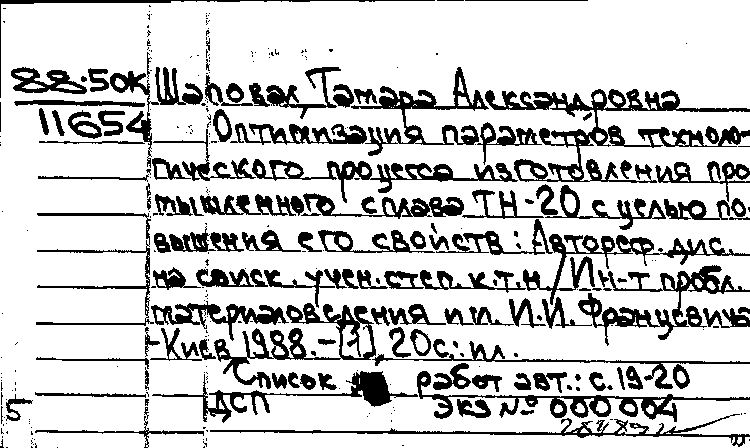 88.50К Шаповал, Тамара Александровна
11654 Оптимизация параметров техноло-
гического процесса изготовления про
мышленного сплава ТН-20 с целью по-
вышения его свойств: Автореф. дис.
на соиск. учен. степ. к.т.н / Ин-т пробл.
материаловедения им. И.И. Францевича
-Киев 1988.-[1], 20с.: ил.
Список работ авт.: с.19-20
ДСП Экз № 000 004
5